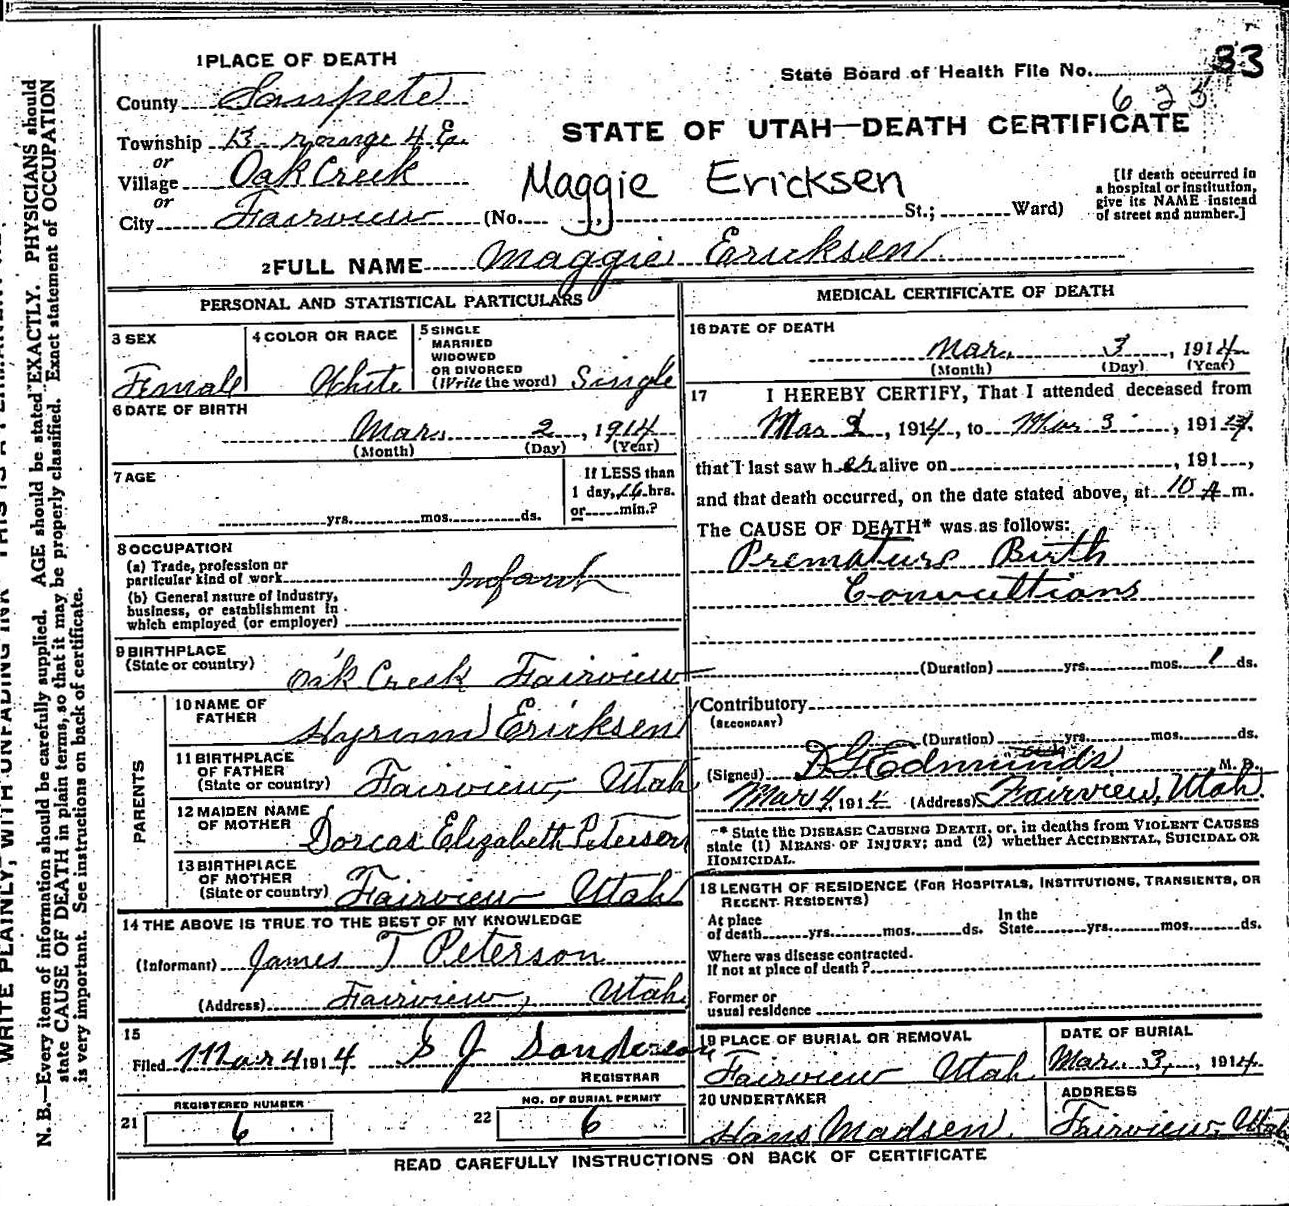 1 PLACE OF DEATH
State Board of Health File No. 33
625
County Sanpete
STATE OF UTAH—DEATH CERTIFICATE
Township 13 range 4 E.
or
Village Oak Creek
or
City Fairview (No. St.; Ward)
Maggie Ericksen
[If death occurred in
a hospital or institution,
give its NAME instead
of street and number.]
2 FULL NAME Maggie Ericksen
PERSONAL AND STATISTICAL PARTICULARS
3 SEX
Female
4 COLOR OR RACE
White
5 SINGLE
MARRIED
WIDOWED
OR DIVORCED
(Write the word) Single
6 DATE OF BIRTH
Mar. 2, 1914
(Month) (Day) (Year)
7 AGE
yrs. mos. ds.
If LESS than
1 day, 16 hrs.
or min.?
8 OCCUPATION
(a) Trade, profession or
particular kind of work Infant
(b) General nature of industry,
business, or establishment in
which employed (or employer)
9 BIRTHPLACE
(State or country) Oak Creek Fairview
PARENTS
10 NAME OF
FATHER Hyrum Ericksen
11 BIRTHPLACE
OF FATHER
(State or country) Fairview, Utah
12 MAIDEN NAME
OF MOTHER Dorcas Elizabeth Peterson
13 BIRTHPLACE
OF MOTHER
(State or country) Fairview Utah
14 THE ABOVE IS TRUE TO THE BEST OF MY KNOWLEDGE
(Informant) James T Peterson
(Address) Fairview, Utah
15
Filed Mar 4 1914 S J Sanderson
REGISTRAR
21 REGISTERED NUMBER
6
22 NO. OF BURIAL PERMIT
6
MEDICAL CERTIFICATE OF DEATH
16 DATE OF DEATH
Mar. 3, 1914
(Month) (Day) (Year)
17 I HEREBY CERTIFY, That I attended deceased from
Mar 2, 1914, to Mar 3, 1914,
that I last saw her alive on , 191 ,
and that death occurred, on the date stated above, at 10 A m.
The CAUSE OF DEATH* was as follows:
Premature Birth
Convultians
(Duration) yrs. mos. 1 ds.
Contributory
(SECONDARY)
(Duration) yrs. mos. ds.
(Signed) D G Edmunds M. D.
Mar 4, 1914 (Address) Fairview, Utah.
* State the DISEASE CAUSING DEATH, or, in deaths from VIOLENT CAUSES
state (1) MEANS OF INJURY; and (2) whether ACCIDENTAL, SUICIDAL OR
HOMICIDAL.
18 LENGTH OF RESIDENCE (FOR HOSPITALS, INSTITUTIONS, TRANSIENTS, OR
RECENT RESIDENTS)
At place
of death yrs. mos. ds.
In the
State yrs. mos. ds.
Where was disease contracted.
If not at place of death?
Former or
usual residence
19 PLACE OF BURIAL OR REMOVAL
Fairview Utah
DATE OF BURIAL
Mar. 3, 1914
20 UNDERTAKER
Hans Madsen.
ADDRESS
Fairview, Utah
READ CAREFULLY INSTRUCTIONS ON BACK OF CERTIFICATE
WRITE PLAINLY, WITH UNFADING INK
N. B.—Every item of information should be carefully supplied. AGE should be stated EXACTLY. PHYSICIANS should
state CAUSE OF DEATH in plain terms, so that it may be properly classified. Exact statement of OCCUPATION
is very important. See instructions on back of certificate.